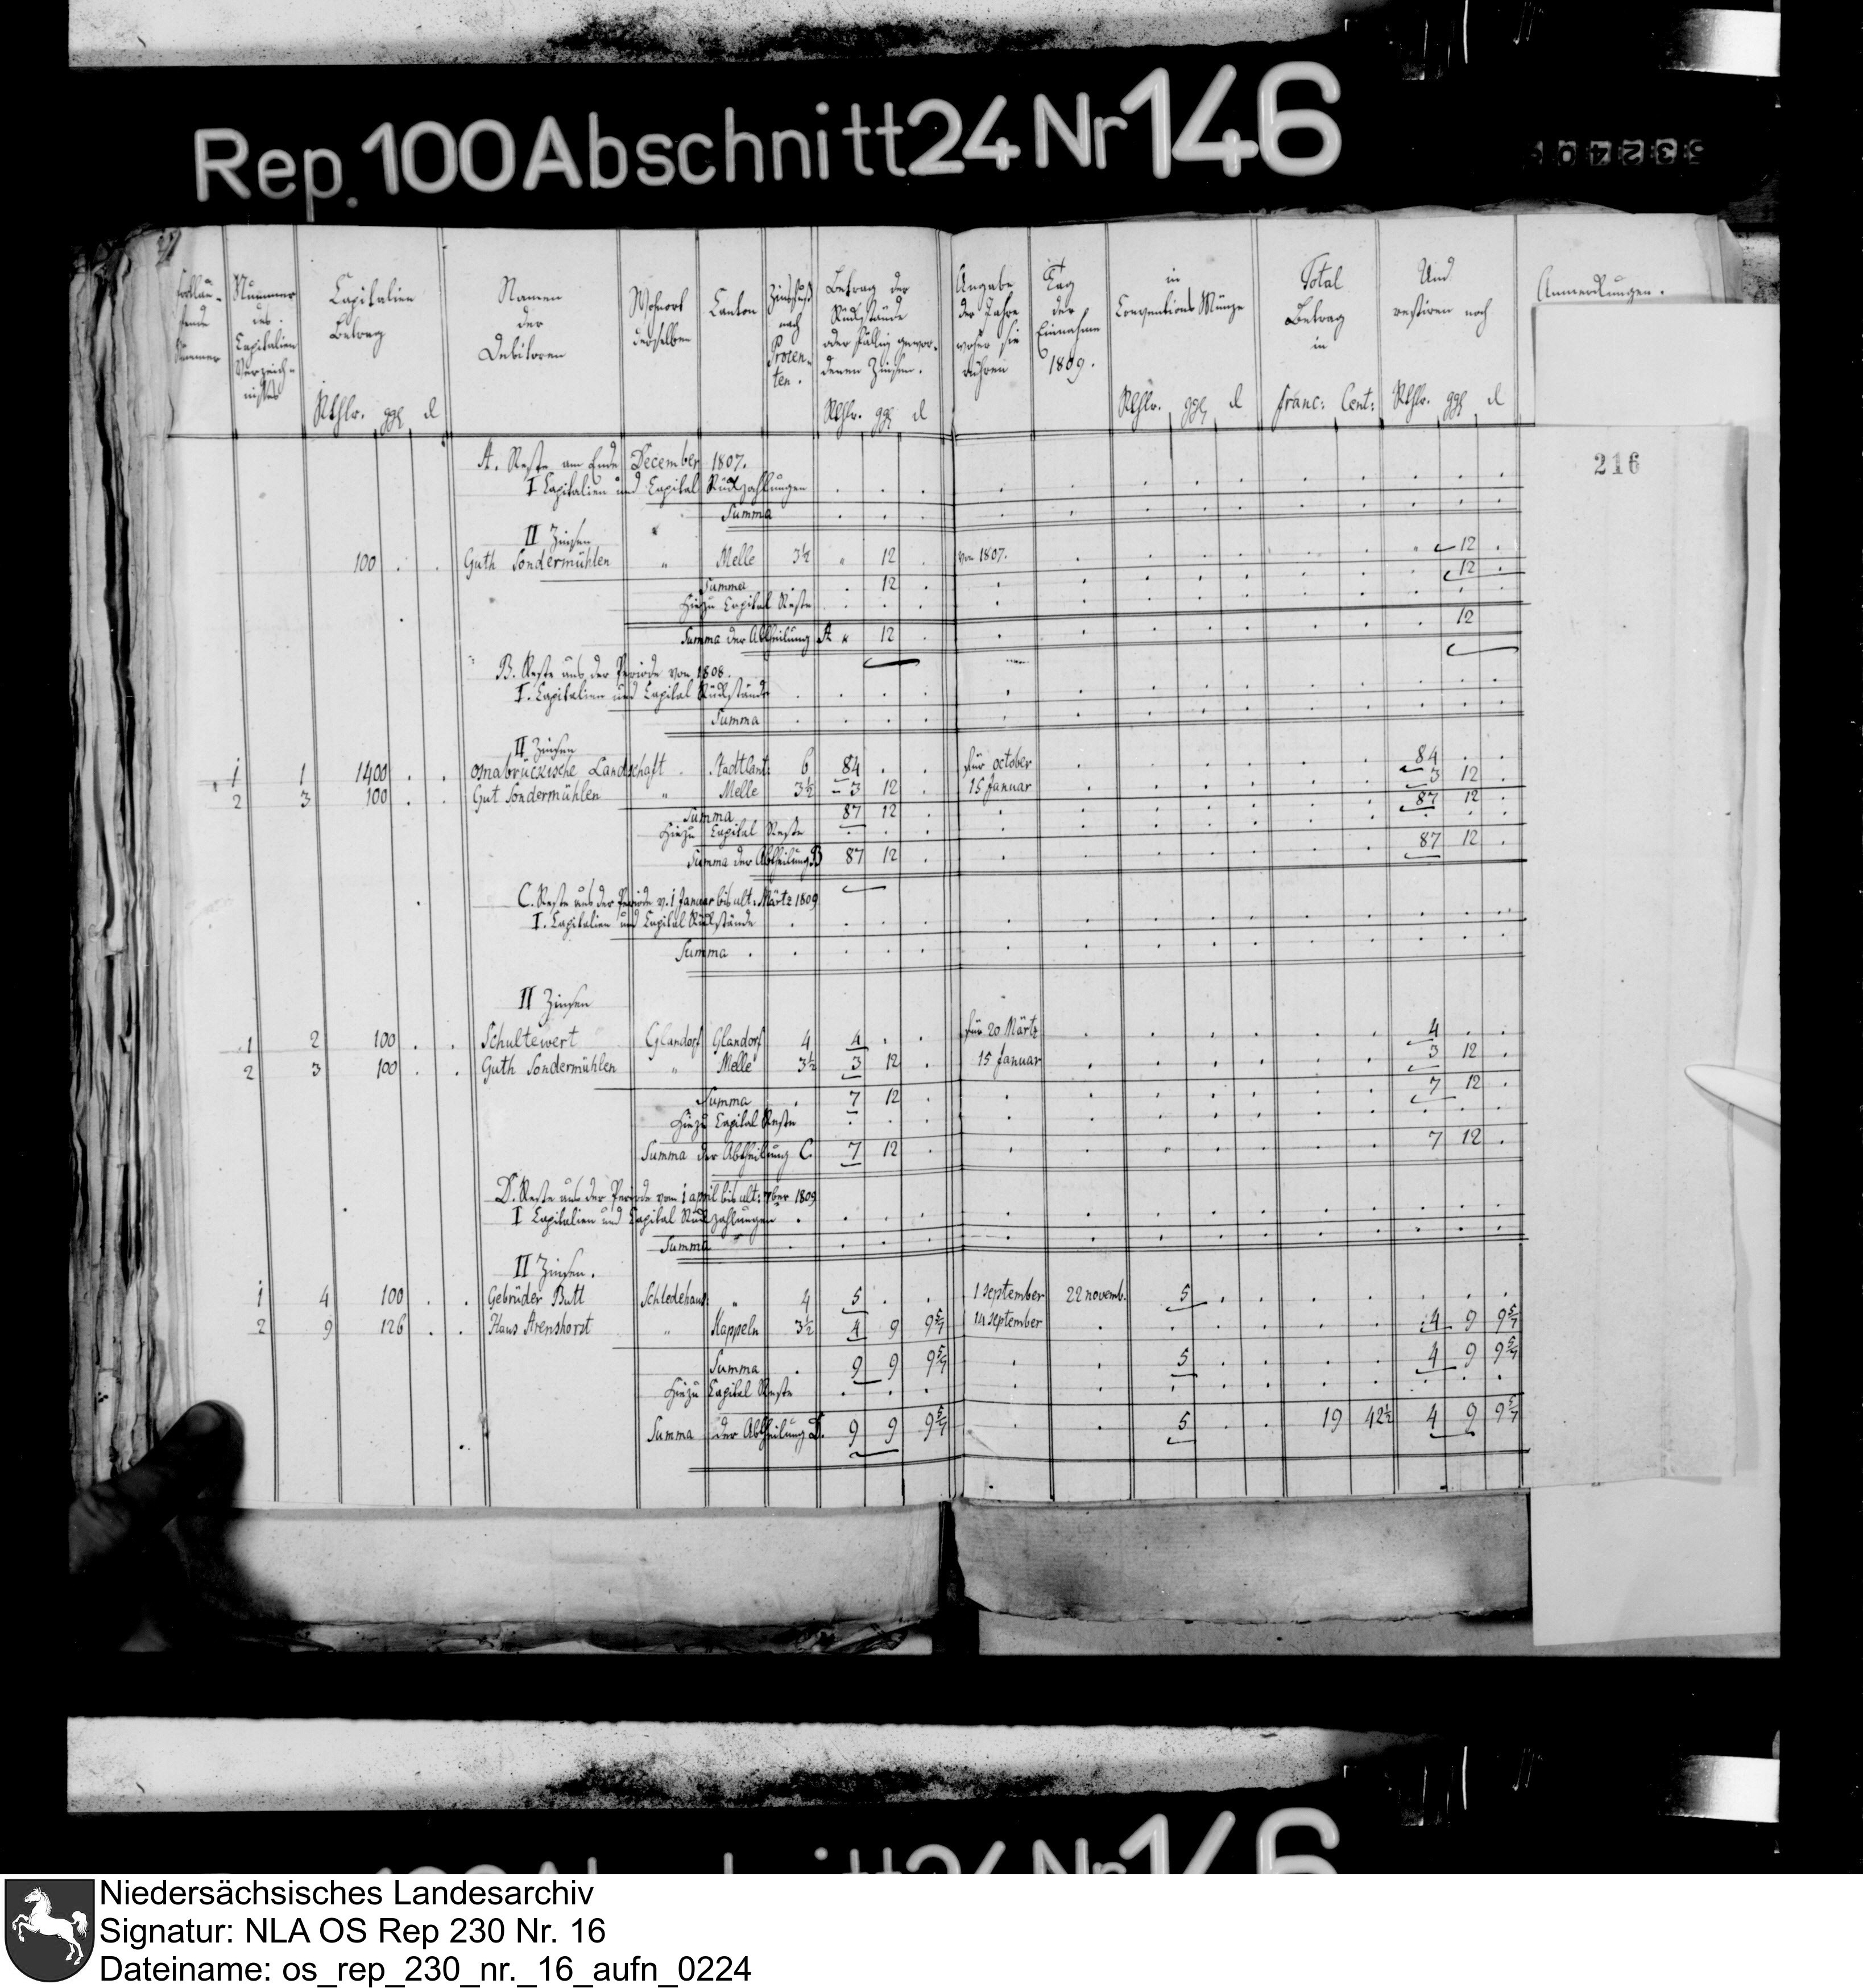 Rep. 100 Abschnitt 24 Nr 146
Fortlau-
fende
Nummer
Nummer
des
Capitalien
Verzeich-
nißes
Capitalien
Betrag
Rthlr. ggl d
Namen
der
Debitoren
Wohnort
derselben
Canton
Zinsfuß
nach
Procen-
ten.
Betrag der
Rückstände
oder fällig gewor-
denen Zinsen.
Rthlr. ggl d
Angabe
der Jahre
woher sie
rühren
Tag
der
Einnahme
1809.
in
Conventions Münze
Rthlr. ggl d
Total
Betrag
in
Franc: Cent:
Und
restiren noch
Rthlr. ggl d
Anmerkungen.
216
A. Reste am Ende December 1807.
I Capitalien und Capital Rückzahlungen
Summa
II Zinsen
100 . . Guth Sondermühlen " Melle 3½ " 12 . von 1807. . . . . . . " 12 .
Summa . . 12 . 12 .
Hiezu Capital Reste
Summa der Abtheilung A " 12 . 12
B. Reste aus der Periode von 1808.
I. Capitalien und Capital Rückstände
Summa
II Zinsen
1 1 1400 . . Osnabrückische Landschaft . Stadtkant: 6 84 . . für October 84 . .
2 3 100 . . Gut Sondermühlen " Melle 3½ 3 12 . 15 Januar 3 12 .
Summa 87 12 . 87 12 .
Hiezu Capital Reste
Summa der Abtheilung B 87 12 . 87 12 .
C. Reste aus der Periode v. 1 Januar bis ult: Märtz 1809
I. Capitalien und Capital Rückstände
Summa
II Zinsen
1 2 100 . . Schultewert Glandorf Glandorf 4 4 . . für 20 Märtz 4 . .
2 3 100 . . Guth Sondermühlen " Melle 3½ 3 12 . 15 Januar 3 12 .
Summa . 7 12 . 7 12 .
Hiezu Capital Reste
Summa der Abtheilung C 7 12 . 7 12 .
D. Reste aus der Periode vom 1 april bis ult: 7ber 1809
I Capitalien und Capital Rückzahlungen
Summa
II Zinsen.
1 4 100 . . Gebrüder Butt Schledehaus " 4 5 . . 1 September 22 novemb. 5 . .
2 9 126 . . Haus Arenshorst " Kappeln 3½ 4 9 9 5/7 14 September 4 9 9 5/7
Summa . 9 9 9 5/7 5 . . 4 9 9 5/7
Hiezu Capital Reste
Summa der Abtheilung D. 9 9 9 5/7 5 . . 19 42½ 4 9 9 5/7
Niedersächsisches Landesarchiv
Signatur: NLA OS Rep 230 Nr. 16
Dateiname: os_rep_230_nr._16_aufn_0224